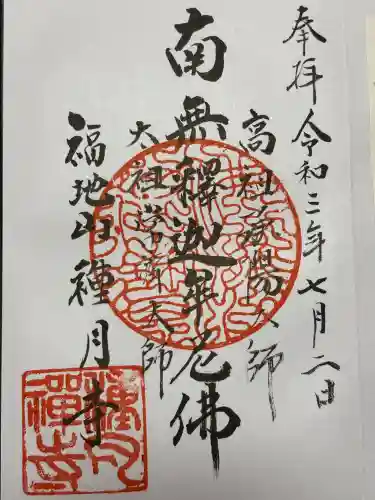 奉拝 令和三年七月二日
高祖承陽大師
南無釋迦牟尼佛
大祖常済大師
福地山種月寺
種月禅寺